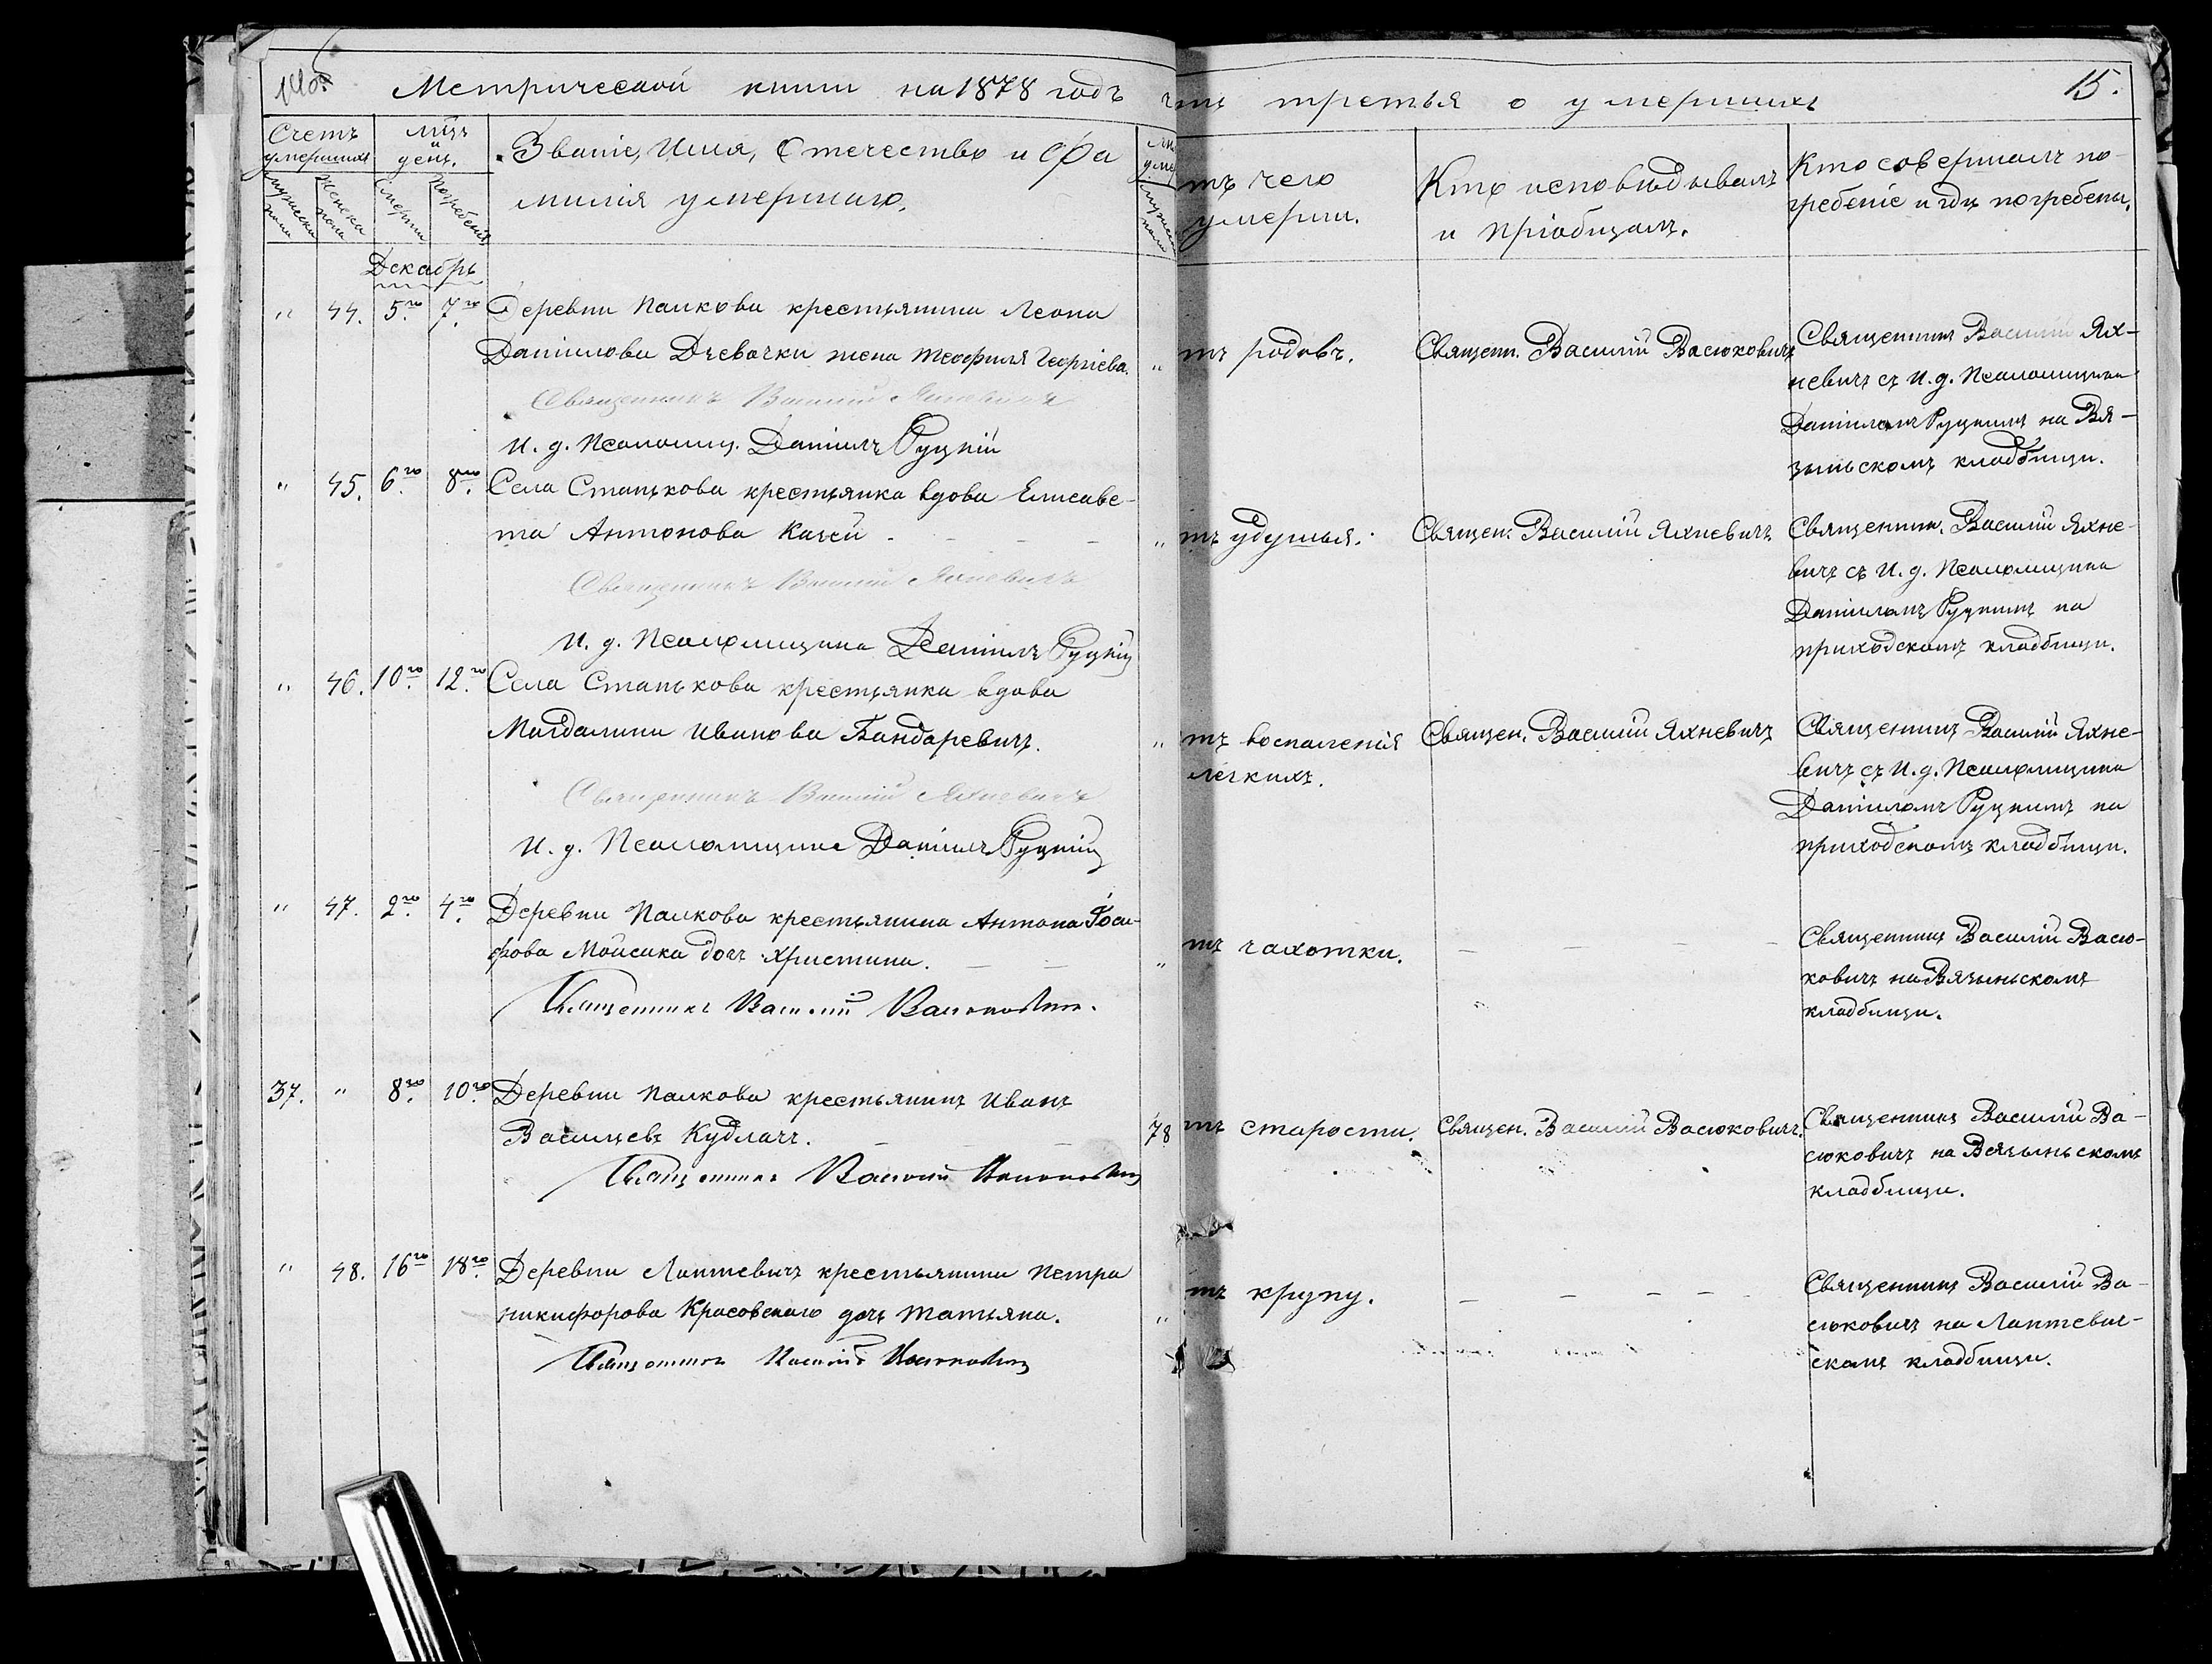 Метрической книги на 1878 годъ
третья о умершихъ
15.
Счетъ умершихъ
Мѣсяцъ и день.
Званіе, Имя, Отечество и Фа-
милія умершаго.
мужеска пола
женска пола
смерти
погребенія
мужеска пола
тъ чего
умерши.
Кто исповѣдывалъ
и пріобщалъ.
Кто совершалъ по-
гребеніе и гдѣ погребены.
Декабрь
" 44. 5го 7го Деревни Палкова крестьянина Леона
Даніилова Дчевачки жена Теофиля Георгіева. "
Священникъ Василій Яхневичъ
И. д. Псаломщ. Даніилъ Руцкій
тъ родовъ.
Священ. Василій Васюковичъ
Священникъ Василій Ях-
невичъ съ И. д. Псаломщика
Даніиломъ Руцкимъ на Вя-
зынскомъ кладбищи.
" 45. 6го 8го Села Станькова крестьянка вдова Елисаве-
та Антонова Качей - - - - "
Священникъ Василій Яхневичъ
И. д. Псаломщика Даніилъ Руцкій
тъ удушья.
Священ. Василій Яхневичъ
Священник. Василій Яхне-
вичъ съ И. д. Псаломщика
Даніиломъ Руцкимъ на
приходскомъ кладбищи.
" 46. 10го 12го Села Станькова крестьянка вдова
Магдалина Иванова Бандаревичъ. "
Священникъ Василій Яхневичъ
И. д. Псаломщика Даніилъ Руцкій
тъ воспаленія
легкихъ.
Священ. Василій Яхневичъ
Священникъ Василій Яхне-
вичъ съ И. д. Псаломщика
Даніиломъ Руцкимъ на
приходскомъ кладбищи.
" 47. 2го 4го Деревни Палкова крестьянина Антона Іоси-
фова Мойсика дочь Христина. — — "
Священникъ Василій Васюковичъ.
тъ чахотки.
— — — —
Священникъ Василій Васю-
ковичъ на Вязынскомъ
кладбищи.
37. " 8го 10го Деревни Палкова крестьянинъ Иванъ
Васильевъ Кудлачъ. — — 78
Священникъ Василій Васюковичъ
тъ старости.
Священ. Василій Васюковичъ.
Священникъ Василій Ва-
сюковичъ на Вязынскомъ
кладбищи.
" 48. 16го 18го Деревни Лаптевичъ крестьянина Петра
Никифорова Красовскаго дочь Татьяна. "
Священникъ Василій Васюковичъ
тъ крупу.
— — — —
Священникъ Василій Ва-
сюковичъ на Лаптевич-
скомъ кладбищи.